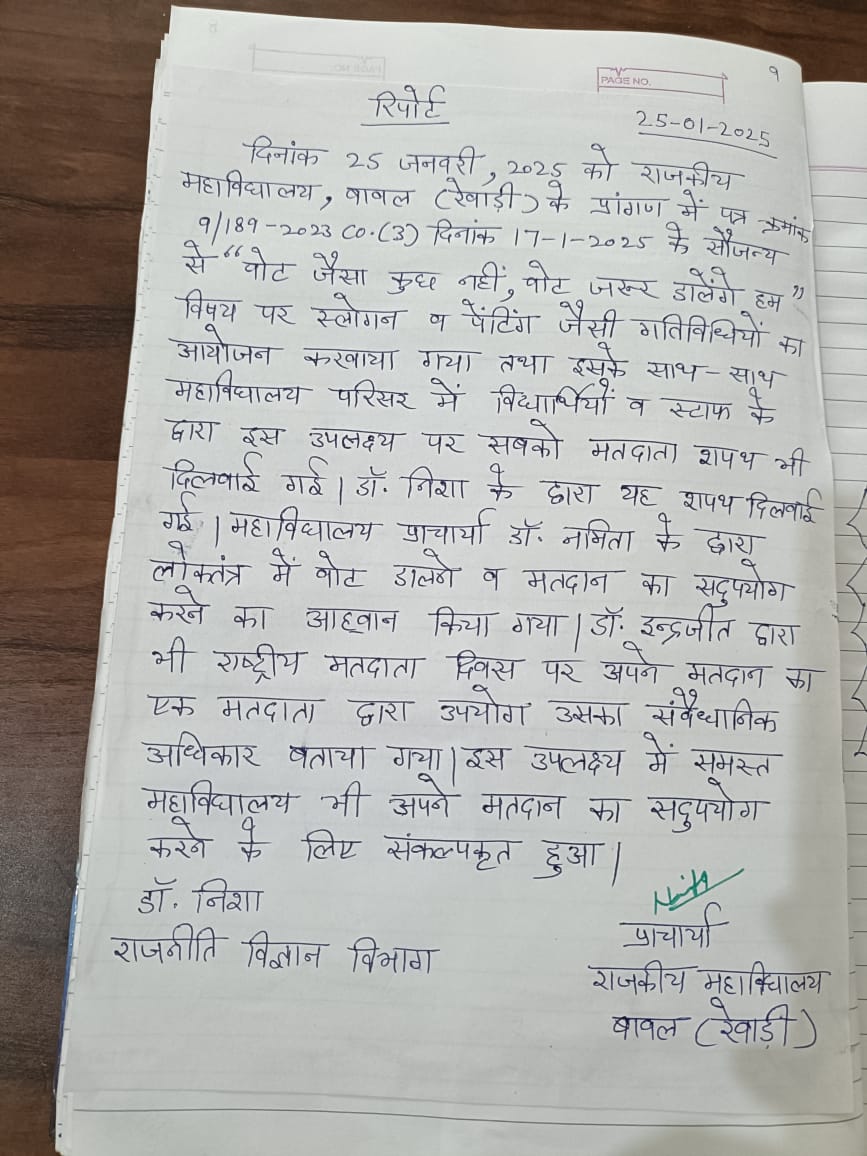 PAGE NO.
9
रिपोर्ट
25-01-2025
दिनांक 25 जनवरी, 2025 को राजकीय
महाविद्यालय, बावल (रेवाड़ी) के प्रांगण में पत्र क्रमांक
9/189-2023 CO.(3) दिनांक 17-1-2025 के सौजन्य
से “वोट जैसा कुछ नहीं, वोट जरूर डालेंगे हम”
विषय पर स्लोगन व पेंटिंग जैसी गतिविधियों का
आयोजन करवाया गया तथा इसके साथ-साथ
महाविद्यालय परिसर में विद्यार्थियों व स्टाफ के
द्वारा इस उपलक्ष्य पर सबको मतदाता शपथ भी
दिलवाई गई। डॉ. निशा के द्वारा यह शपथ दिलवाई
गई। महाविद्यालय प्राचार्या डॉ. नमिता के द्वारा
लोकतंत्र में वोट डालने व मतदान का सदुपयोग
करने का आह्वान किया गया। डॉ. इन्द्रजीत द्वारा
भी राष्ट्रीय मतदाता दिवस पर अपने मतदान का
एक मतदाता द्वारा उपयोग उसका संवैधानिक
अधिकार बताया गया। इस उपलक्ष्य में समस्त
महाविद्यालय भी अपने मतदान का सदुपयोग
करने के लिए संकल्पकृत हुआ।
डॉ. निशा
राजनीति विज्ञान विभाग
प्राचार्या
राजकीय महाविद्यालय
बावल (रेवाड़ी)